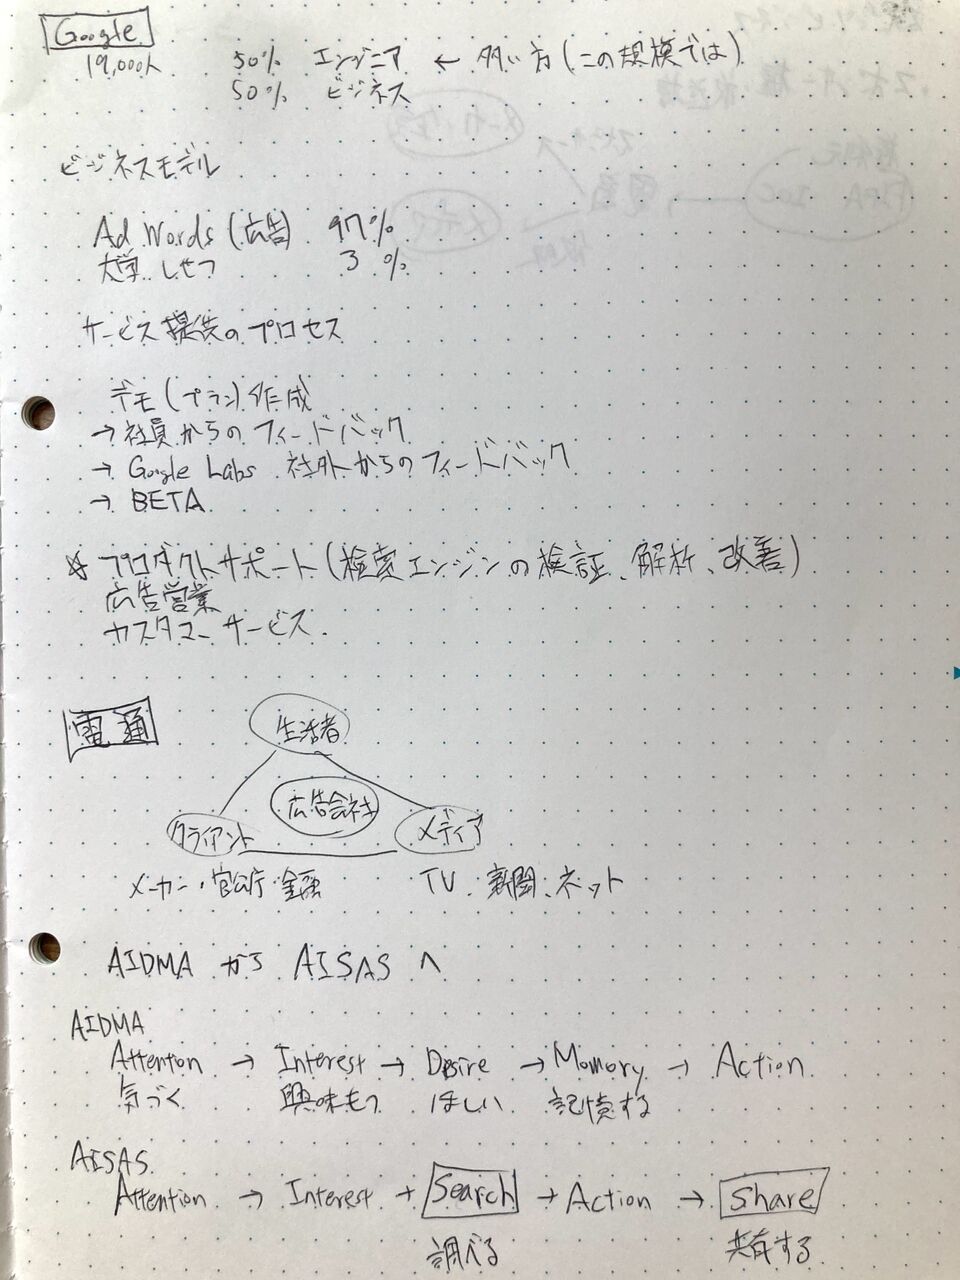 Google
19,000人 50% エンジニア ← 多い方(この規模では)
50% ビジネス
ビジネスモデル
Ad Words (広告) 97%
大学 しせつ 3%
サービス提供のプロセス
デモ(プラン)作成
→ 社員からのフィードバック
→ Google Labs 社外からのフィードバック
→ BETA
☆ プロダクトサポート(検索エンジンの検証、解析、改善)
広告営業
カスタマーサービス.
電通
生活者
広告会社
クライアント メディア
メーカー・官公庁・金融 TV、新聞、ネット
AIDMA から AISAS へ
AIDMA
Attention → Interest → Desire → Momory → Action
気づく 興味もつ ほしい 記憶する
AISAS
Attention → Interest → Search → Action → Share
調べる 共有する